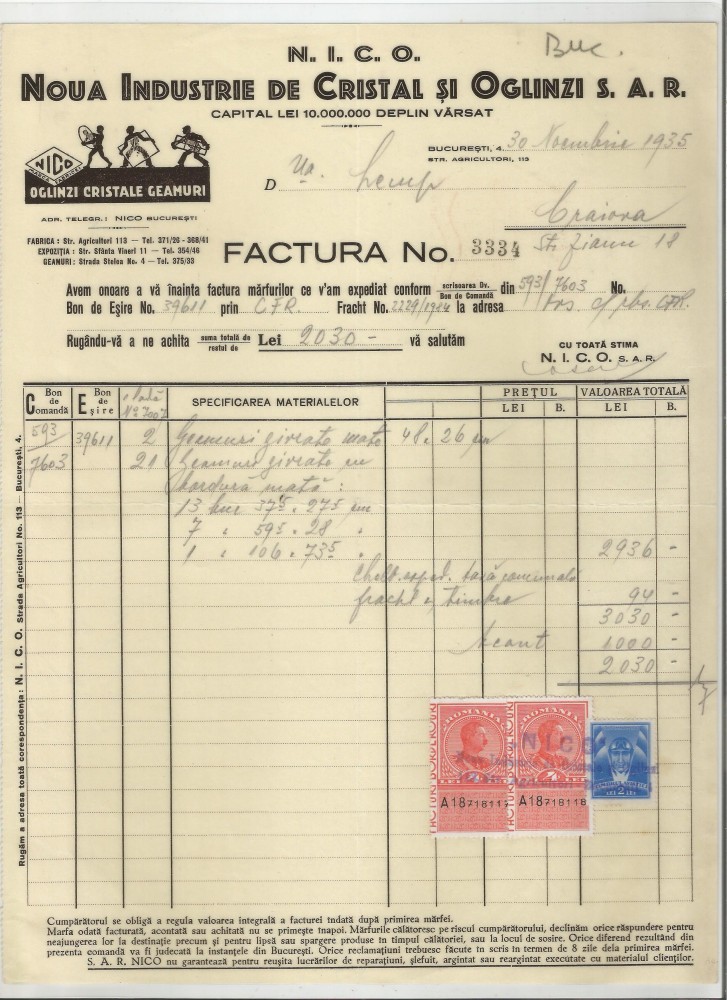 Buc.
N. I. C. O.
NOUA INDUSTRIE DE CRISTAL ȘI OGLINZI S. A. R.
CAPITAL LEI 10.000.000 DEPLIN VĂRSAT
NICO
MARCA FABRICEI
OGLINZI CRISTALE GEAMURI
BUCUREȘTI, 4. 30 Noembrie 1935
STR. AGRICULTORI, 113
D
Craiova
ADR. TELEGR.: NICO BUCUREȘTI
FABRICA: Str. Agricultori 113 — Tel. 371/26 - 368/41
EXPOZIȚIA: Str. Sfânta Vineri 11 — Tel. 354/46
GEAMURI: Strada Stelea No. 4 — Tel. 375/33
FACTURA No. 3334
Str. Jianu 18
Avem onoare a vă înainta factura mărfurilor ce v'am expediat conform scrisoarea Dv. / Bon de Comandă din 593/7603 No.
Bon de Eșire No. 39611 prin C.F.R. Fracht No. 2229/1914 la adresa
Rugându-vă a ne achita suma totală de / restul de Lei 2030 - vă salutăm
CU TOATĂ STIMA
N. I. C. O. S. A. R.
Bon de Comandă
Bon de Eșire
1 Ladă No 7007
SPECIFICAREA MATERIALELOR
PREȚUL
LEI B.
VALOAREA TOTALĂ
LEI B.
593 39611 2 Geamuri givrate mate 48 x 26 cm
7603 21 Geamuri givrate cu
bordură mată :
13 buc 37⁵ x 27⁵ cm
7 " 59⁵ x 28 "
1 " 106 x 73⁵ " 2936 -
Chelt. exped. taxă comunală
fracht și timbre 94 -
3030 -
Acont 1000 -
2030 -
ROMANIA
ROMANIA
4 LEI
4 LEI
A18718117
A18718118
NICO
LEI 2 LEI
Rugăm a adresa toată corespondența: N. I. C. O. Strada Agricultori No. 113 — București, 4.
Cumpărătorul se obligă a regula valoarea integrală a facturei îndată după primirea mărfei.
Marfa odată facturată, acontată sau achitată nu se primește înapoi. Mărfurile călătoresc pe riscul cumpărătorului, declinăm orice răspundere pentru
neajungerea lor la destinație precum și pentru lipsă sau spargere produse în timpul călătoriei, sau la locul de sosire. Orice diferend rezultând din
prezenta comandă va fi judecată la instanțele din București. Orice reclamațiuni trebuesc făcute în scris în termen de 8 zile dela primirea mărfei.
S. A. R. NICO nu garantează pentru reușita lucrărilor de reparații, șlefuit, argintat sau reargintat executate cu materialul clienților.